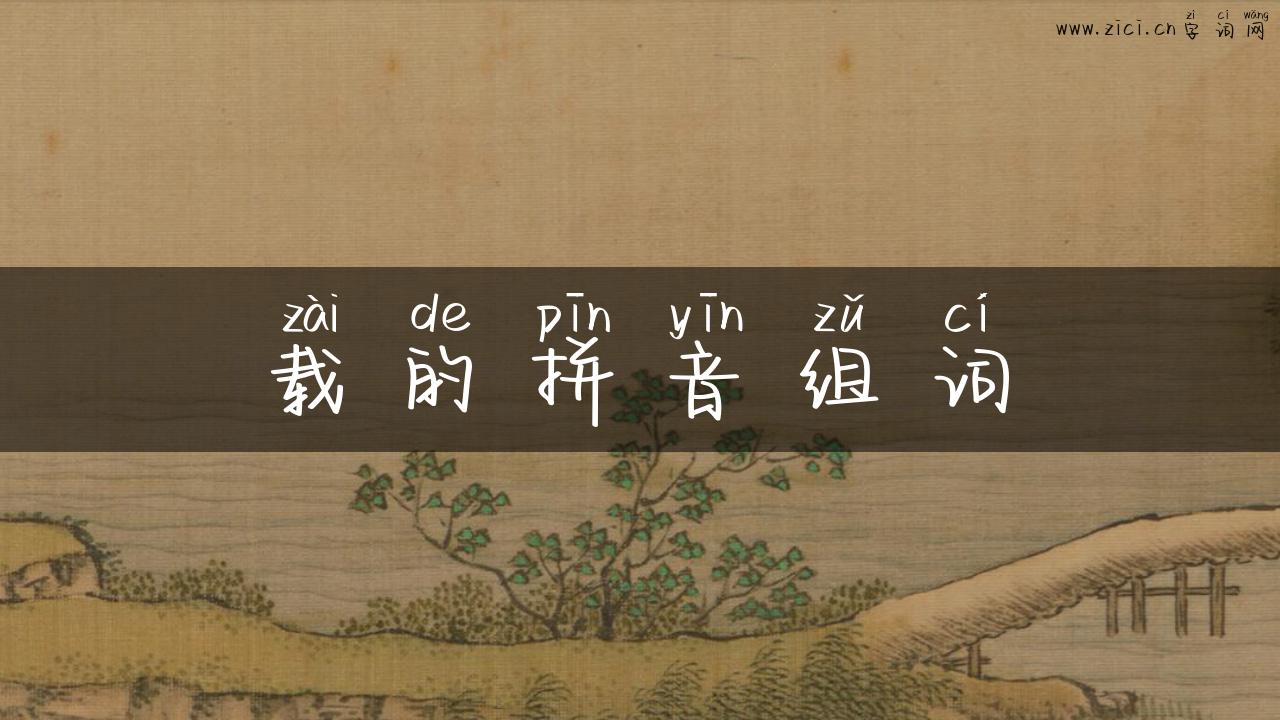 zì cí wǎng
www.zici.cn字词网
zài de pīn yīn zǔ cí
载的拼音组词